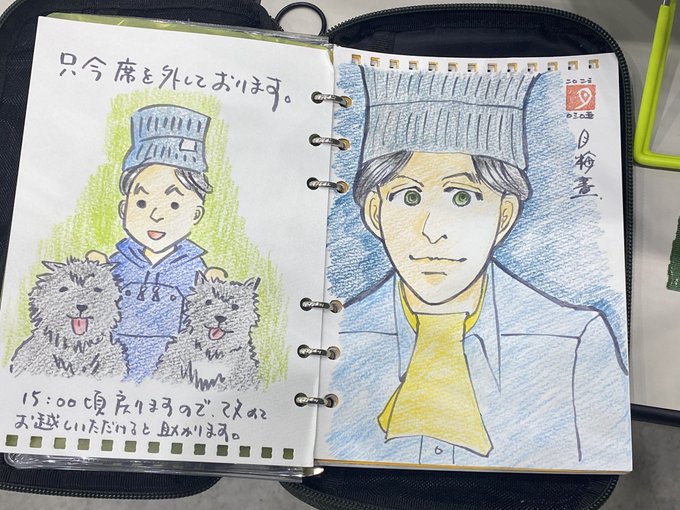 只今席を外しております。
15:00頃戻りますので、改めて
お越しいただけると助かります。
2023